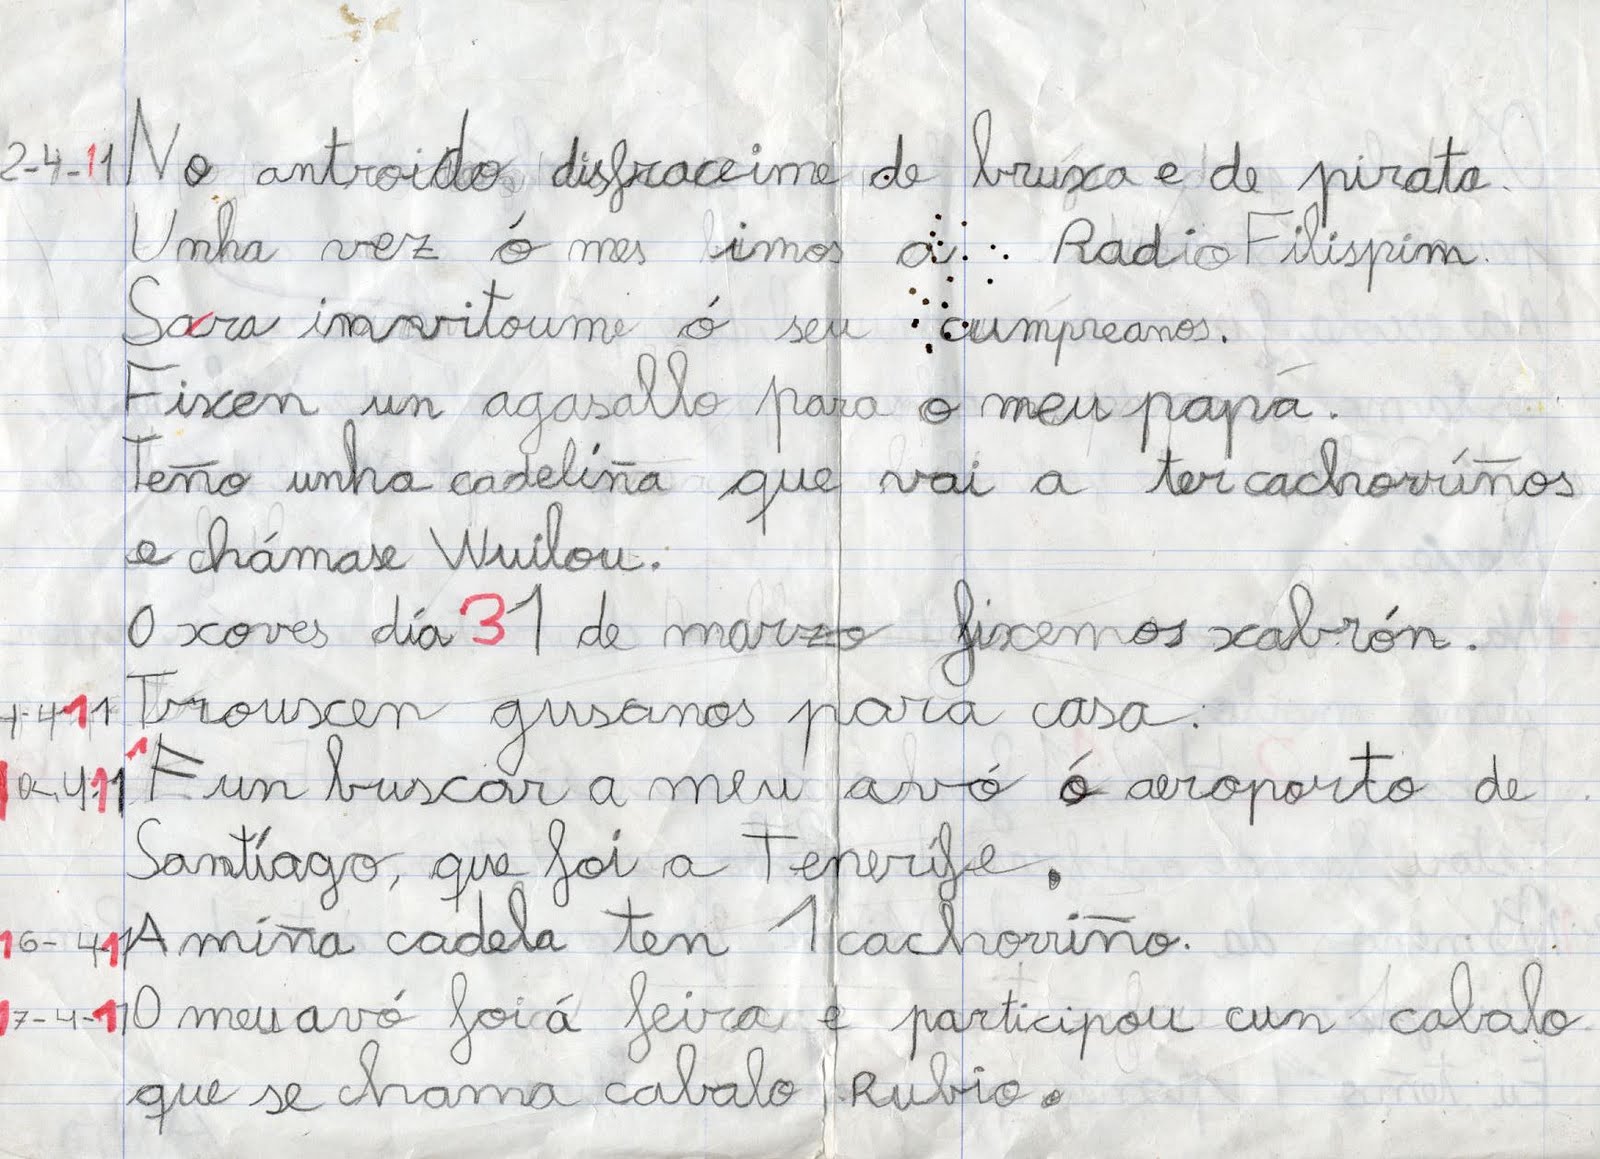 2-4-11 No antroido disfraceime de bruxa e de pirata.
Unha vez ó mes imos a Radio Filispim.
Sara invitoume ó seu cumpreanos.
Fixen un agasallo para o meu papá.
Teño unha cadeliña que vai a ter cachorriños
e chámase Wuilou.
O xoves día 31 de marzo fixemos xabrón.
4-11 Trouxen gusanos para casa.
4-11 Fun buscar a meu avó ó aeroporto de
Santiago, que foi a Tenerife.
16-4-11 A miña cadela ten 1 cachorriño.
17-4-11 O meu avó foi á feira e participou cun cabalo
que se chama cabalo Rubio.